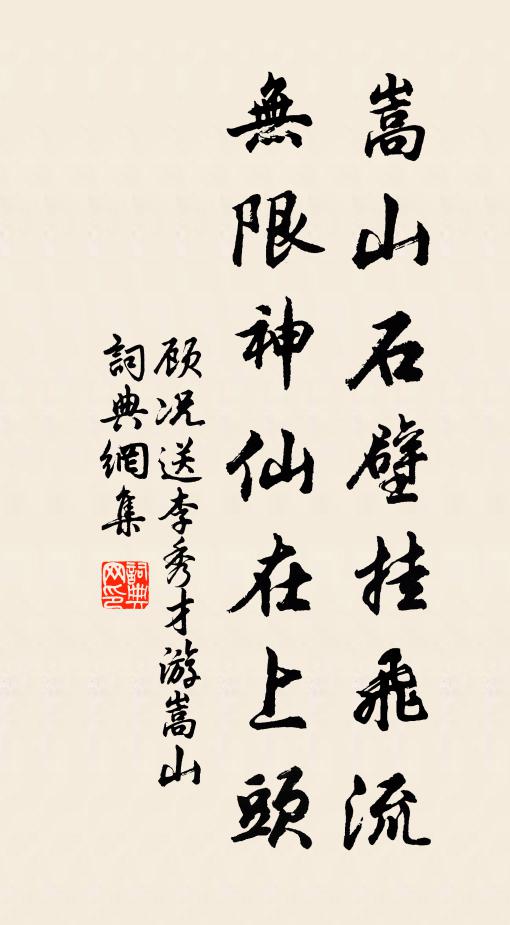 嵩山石壁挂飛流
無限神仙在上頭
顾况送李秀才游嵩山
詞典網集
詞典网印